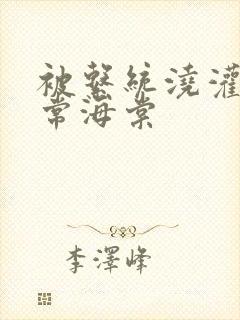 被繫統澆灌
常海棠
李澤峰